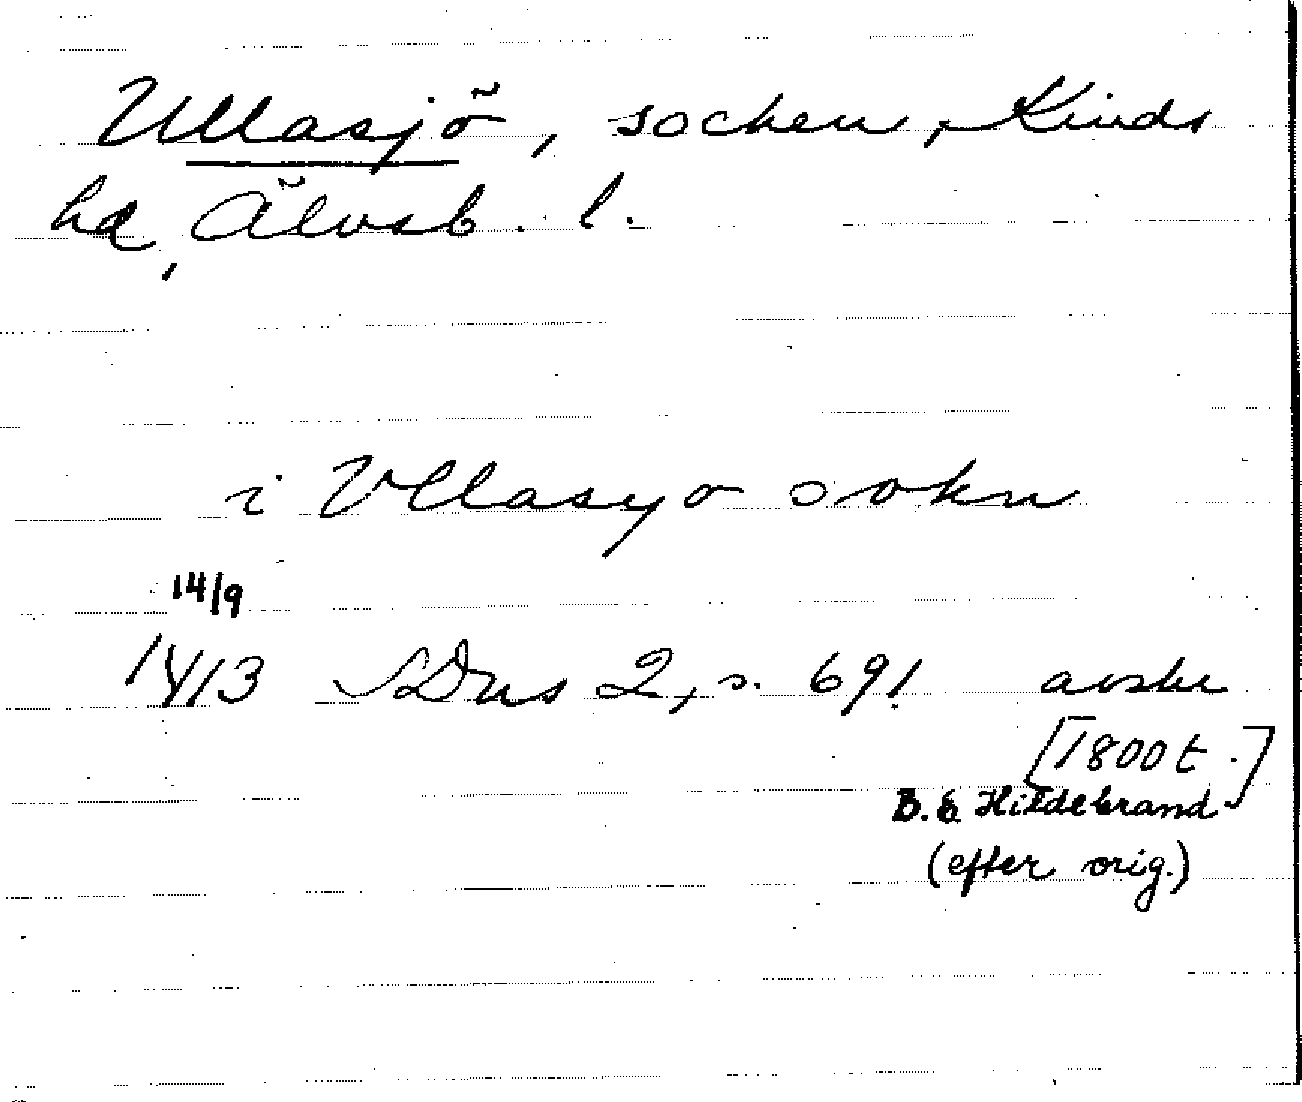 Ullasjö, socken, Kinds
hd, Älvsb. l.
i Vllasyo sokn
14/9
1413 SDns 2, s. 691 avskr
[1800 t.]
B. E. Hildebrand
(efter orig.)